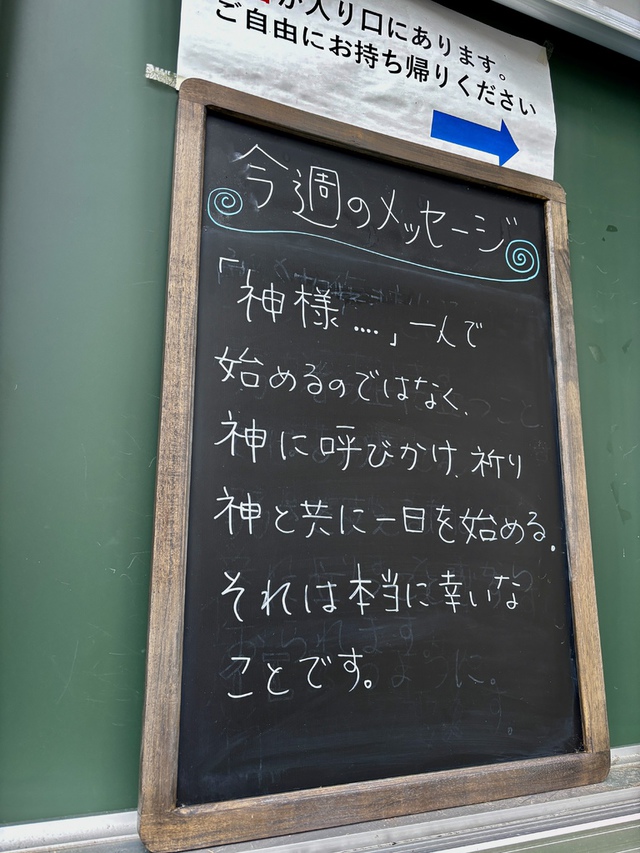 が入り口にあります。
ご自由にお持ち帰りください
今週のメッセージ
「神様….」一人で
始めるのではなく、
神に呼びかけ、祈り
神と共に一日を始める。
それは本当に幸いな
ことです。